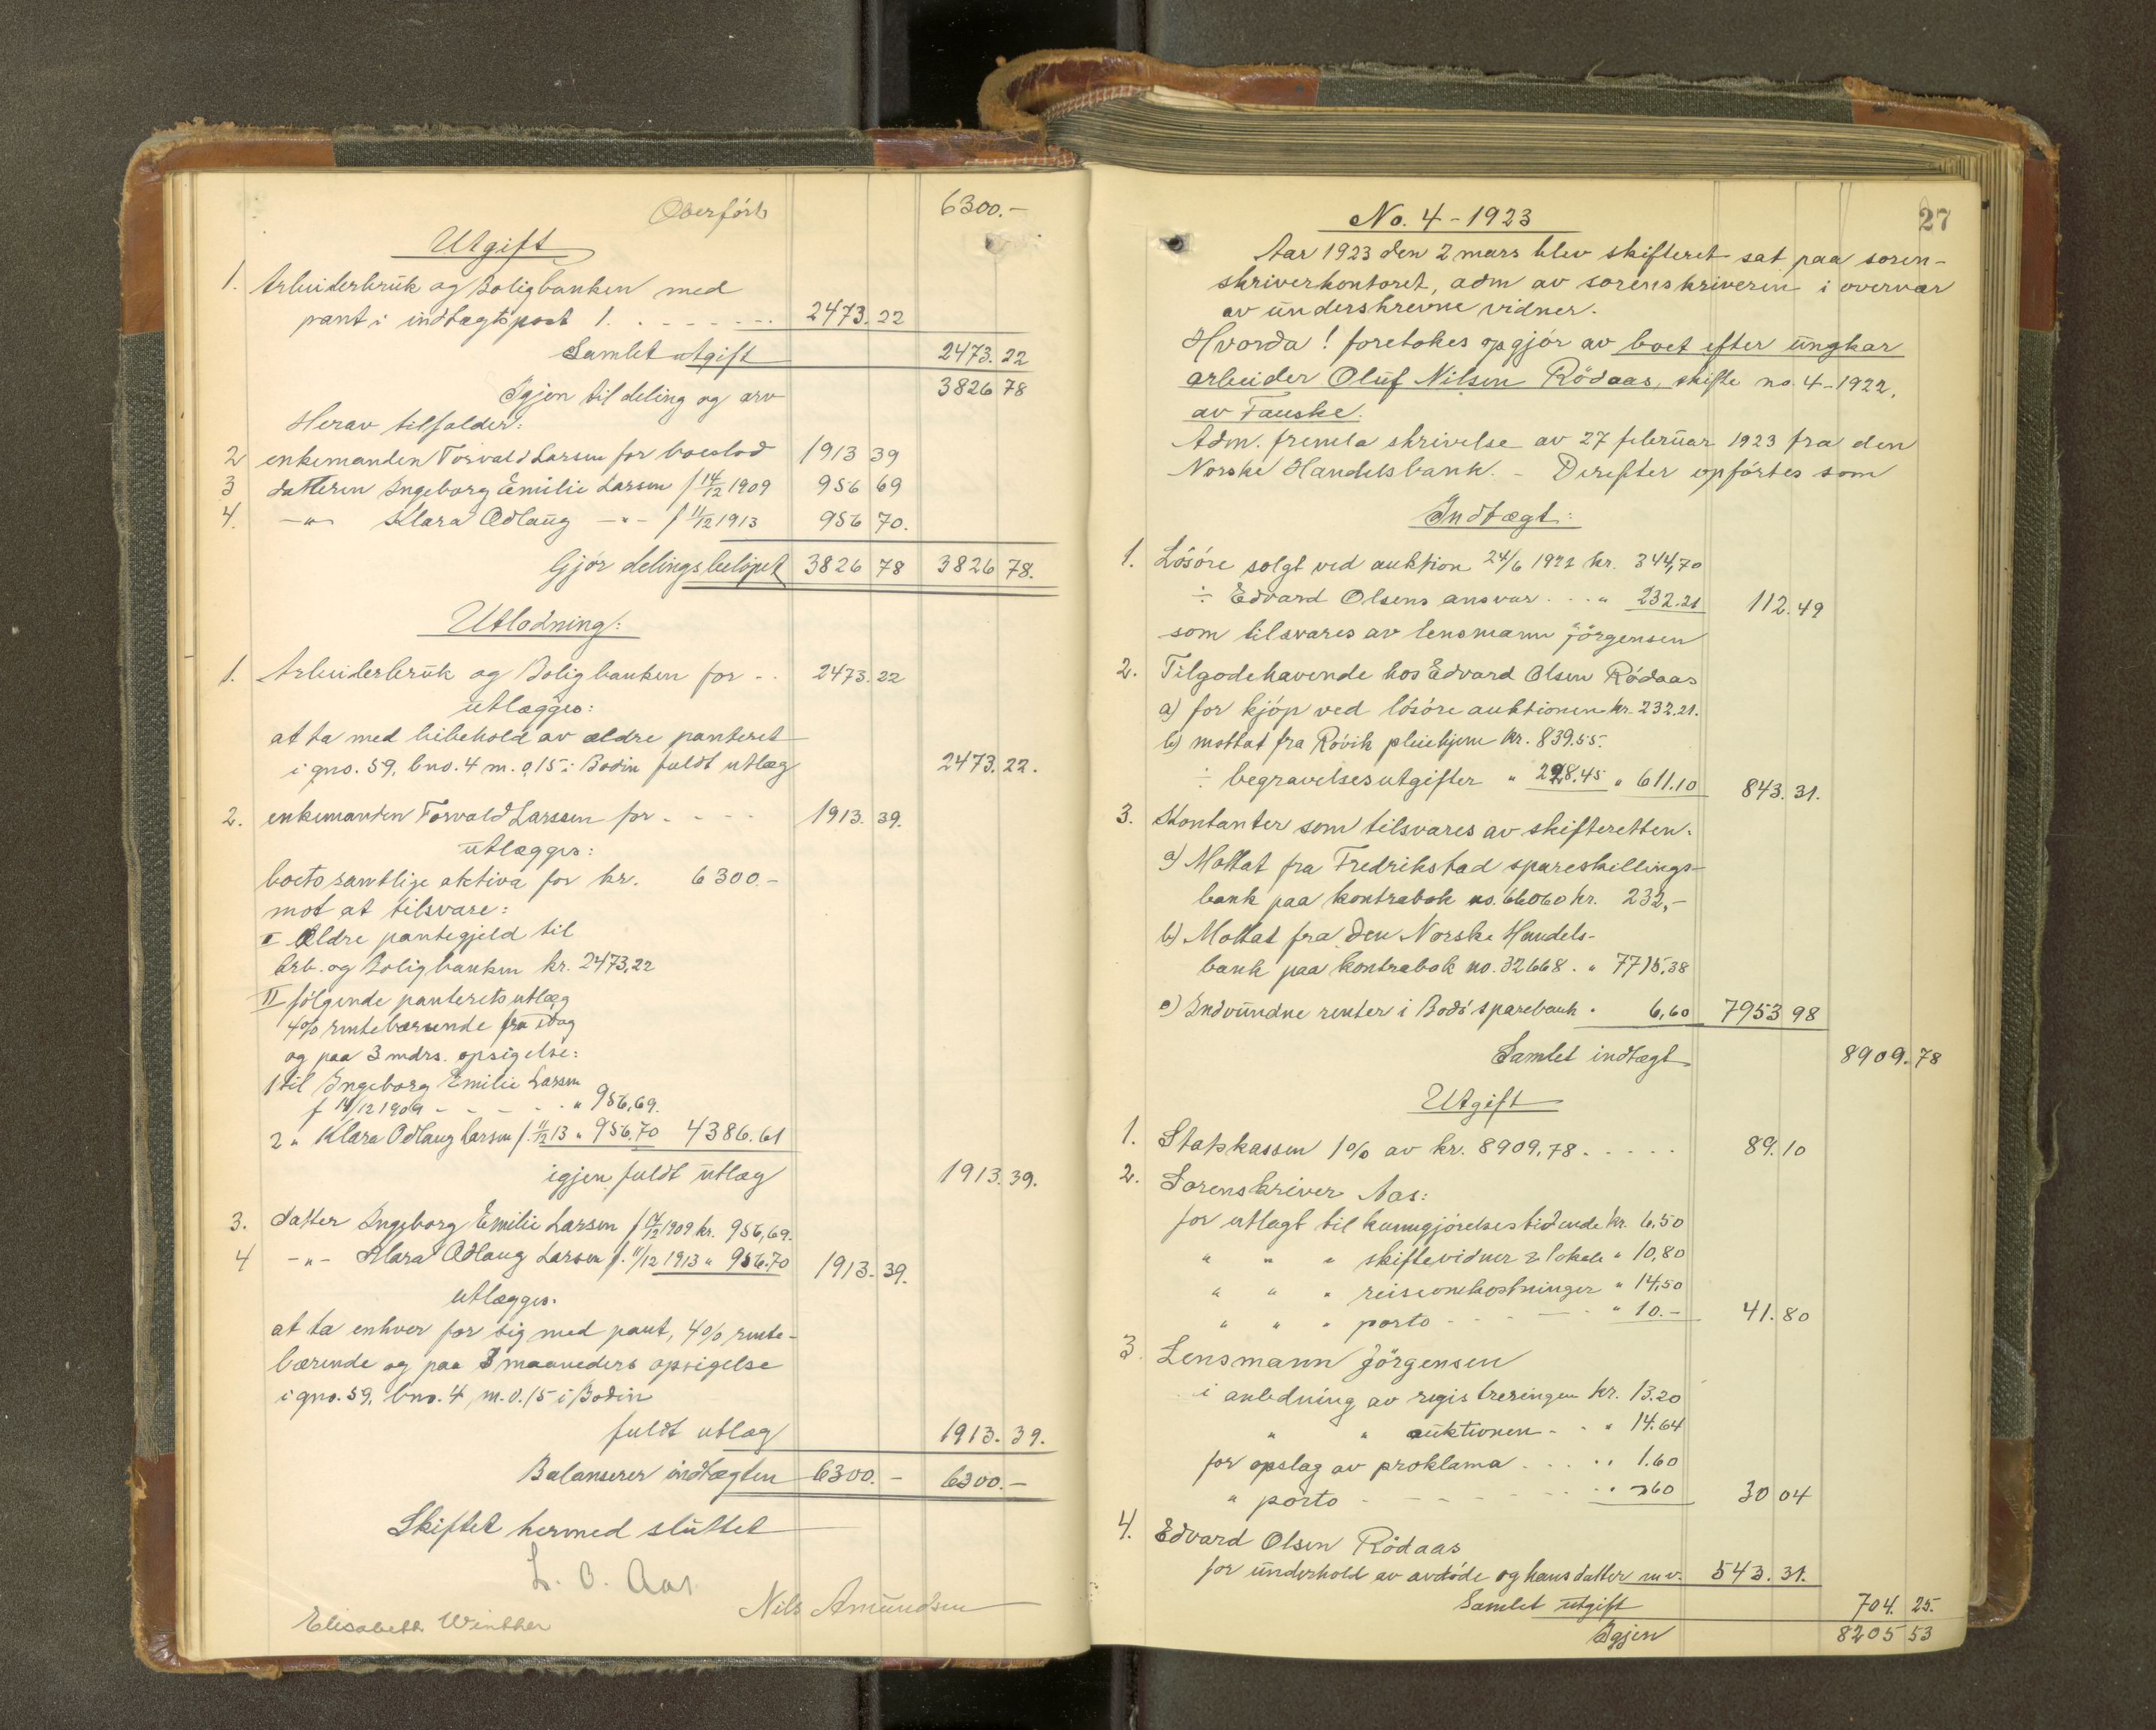 Overført 6300.-
Utgift
1. Arbeiderbruk og Boligbanken med
pant i indtægtspost 1. - - - - - - 2473.22
Samlet utgift 2473.22
Igjen til deling og arv 3826 78
Herav tilfalder:
2 enkemanden Torvald Larsen for boeslod 1913 39
3 datteren Ingeborg Emilie Larsen f 14/12 1909 956 69
4. -"- Klara Odlaug -"- f 11/12 1913 956 70.
Gjør delingsbeløpet 3826 78 3826 78.
Utlodning:
1. Arbeiderbruk og Boligbanken for - . 2473.22
utlægges:
at ta med bibehold av ældre panteret
i gno. 59, bno. 4 m. 0,15 i Bodin fuldt utlæg 2473.22.
2. enkemanden Torvald Larssen for - - - - 1913.39.
utlægges:
boets samtlige aktiva for kr. 6300.-
mot at tilsvare:
I Ældre pantegjeld til
Arb. og Boligbanken kr. 2473,22
II følgende panterets utlæg
4% rentebærende fra idag
og paa 3 mdrs. opsigelse:
1 til Ingeborg Emilie Larsen
f 14/12 1909 - - - - - " 956,69.
2 " Klara Odlaug Larsen f. 11/12 13 " 956,70 4386.61
igjen fuldt utlæg 1913.39.
3. datter Ingeborg Emilie Larsen f 14/12 1909 kr. 956,69.
4 -"- Klara Odlaug Larsen f. 11/12 1913 " 956.70 1913.39.
utlægges.
at ta enhver for sig med pant, 4% rente-
bærende og paa 3 maaneders opsigelse
i gno. 59, bno. 4 m. 0.15 i Bodin
fuldt utlæg 1913.39.
Balanserer indtægten 6300.- 6300.-
Skiftet hermed sluttet
L. O. Aas.
Elisabeth Winther Nils Amundsen
27
No. 4 - 1923
Aar 1923 den 2 mars blev skifteret sat paa soren-
skriverkontoret, adm av sorenskriveren i overvær
av underskrevne vidner.
Hvorda! foretokes opgjør av boet efter ungkar
arbeider Oluf Nilsen Rödaas, skifte no. 4 - 1922,
av Fauske.
Adm. fremla skrivelse av 27 februar 1923 fra den
Norske Handelsbank. - Derefter opførtes som
Indtægt:
1. Løsøre solgt ved auktion 24/6 1922 kr. 344,70
÷ Edvard Olsens ansvar . . . " 232.21 112.49
som tilsvares av lensmann Jørgensen
2. Tilgodehavende hos Edvard Olsen Rödaas
a) for kjøp ved løsøreauktionen kr. 232.21.
b) mottat fra Røvik pleiehjem kr. 839.55.
÷ begravelsesutgifter " 228.45 " 611.10 843.31.
3. Kontanter som tilsvares av skifteretten.
a) Mottat fra Fredrikstad spareskillings-
bank paa kontrabok no. 66060 kr. 232,-
b) Mottat fra den Norske Handels-
bank paa kontrabok no. 32668. " 7715,38
c) Indvundne renter i Bodø sparebank " 6,60 7953 98
Samlet indtægt 8909.78
Utgift
1. Statskassen 1% av kr. 8909,78 . . . . . 89.10
2. Sorenskriver Aas:
for utlagt til kunngjørelsestidende kr. 6,50
" " " skiftevidner & lokale " 10,80
" " " reiseomkostninger " 14,50
" " " porto - - - - " 10.- 41.80
3. Lensmann Jørgensen
i anledning av registreringen kr. 13.20
" " auktionen - - " 14.64
for opslag av proklama . . . . . 1.60
" porto - - - - - - - - " -.60 30 04
4. Edvard Olsen Rödaas
for underhold av avdøde og hans datter m.v. 543.31.
Samlet utgift 704.25.
Igjen 8205 53